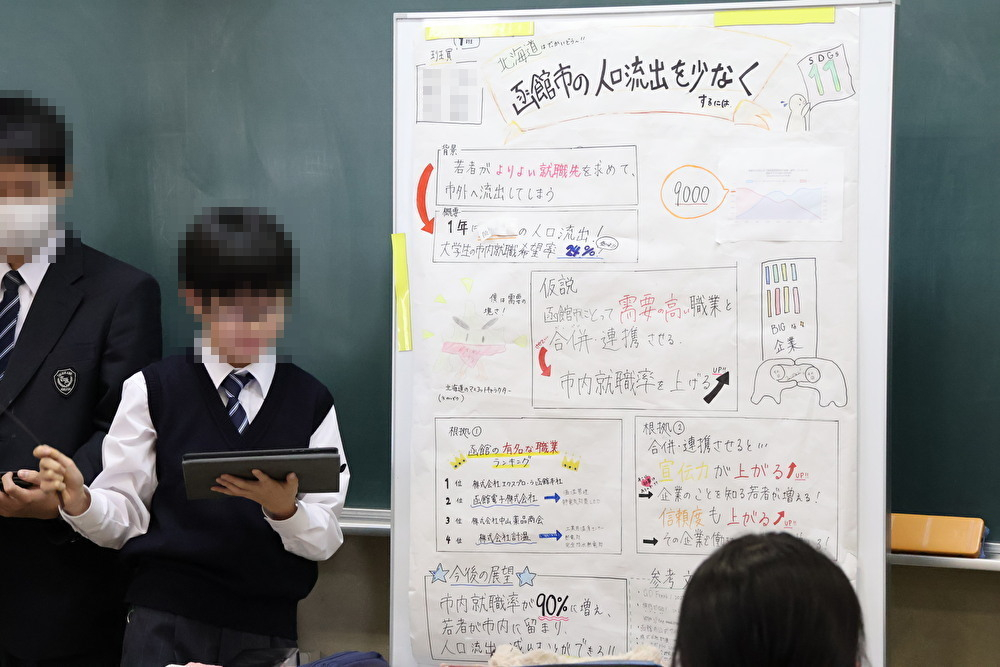 班員
北海道はでっかいどう～!!
函館市の人口流出を少なく
するには
SDGs
11
背景
若者がよりよい就職先を求めて、
市外へ流出してしまう
9000
概要
1年に
の人口流出!
大学生の市内就職希望率 24%
僕は需要の
塊さ!
北海道のマスコットキャラクター
仮説
函館市にとって需要の高い職業と
合併・連携させる.
市内就職率を上げる UP!!
BIGな
企業
根拠①
函館の有名な職業
ランキング
1位 株式会社エウスプローラ函館本社
2位 函館電子株式会社
3位 株式会社中山薬品商会
4位 株式会社計温
根拠②
合併・連携させると…
宣伝力が上がる UP!!
企業のことを知る若者が増える!
信頼度も上がる UP!!
その企業で働
今後の展望
市内就職率が90%に増え、
若者が市内に留まり、
人口流出
ことができる!!
参考文